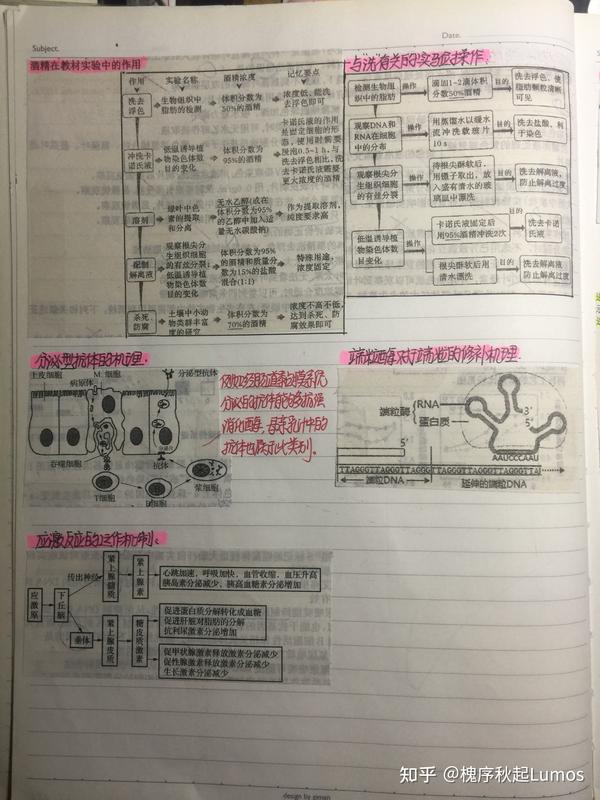 Subject.
Date.
酒精在教材实验中的作用
作用
实验名称
酒精浓度
记忆要点
洗去浮色
生物组织中脂肪的检测
体积分数为50%的酒精
浓度低,能洗去浮色即可
冲洗卡诺氏液
低温诱导植物染色体数目变化
体积分数为95%的酒精
卡诺氏液的作用是固定细胞的形态,使用时需要浸泡0.5~1 h,与洗去浮色相比,洗去卡诺氏液需要更大浓度的酒精
溶剂
绿叶中色素的提取和分离
无水乙醇(或在体积分数为95%的乙醇中加入适量无水碳酸钠)
作为提取溶剂,纯度要求高
配制解离液
观察根尖分生组织细胞的有丝分裂;低温诱导植物染色体数目的变化
体积分数为95%的酒精和质量分数为15%的盐酸混合(1:1)
特殊用途,浓度固定
杀死、防腐
土壤中小动物类群丰富度的研究
体积分数为70%的酒精
浓度不高不低,达到杀死、防腐效果即可
与洗有关的实验操作.
检测生物组织中的脂肪
操作
滴加1~2滴体积分数50%酒精
目的
洗去浮色,使脂肪颗粒清晰可见
观察DNA和RNA在细胞中的分布
操作
用蒸馏水以缓水流冲洗载玻片10 s
目的
洗去盐酸、利于染色
观察根尖分生组织细胞的有丝分裂
操作
待根尖酥软后,用镊子取出,放入盛有清水的玻璃皿中漂洗
目的
洗去解离液,防止解离过度
低温诱导植物染色体数目变化
操作
卡诺氏液固定后用95%酒精冲洗2次
目的
洗去卡诺氏液
根尖酥软后用清水漂洗
目的
洗去解离液防止解离过度
分泌型抗体的机理.
上皮细胞
M细胞
病原体
分泌型抗体
吞噬细胞
抗体
T细胞
B细胞
浆细胞
分泌的抗体
消化酶
抗体也属于此类别.
端粒酶对端粒的修补机理.
端粒酶
RNA
蛋白质
3′
5′
5′
AAUCCCAAU
TTAGGGTTAGGGTTAGGGTTAGGGTTAGGGTTAGGGTTA
端粒DNA
延伸的端粒DNA
应激反应的工作机制.
应激原
下丘脑
传出神经
肾上腺髓质
肾上腺素
心跳加速,呼吸加快,血管收缩,血压升高
胰岛素分泌减少、胰高血糖素分泌增加
垂体
肾上腺皮质
糖皮质激素
促进蛋白质分解转化成血糖
促进肝脏对脂肪的分解
抗利尿激素分泌增加
促甲状腺激素释放激素分泌减少
促性腺激素释放激素分泌减少
生长激素分泌减少
design by gimsn
知乎 @槐序秋起Lumos